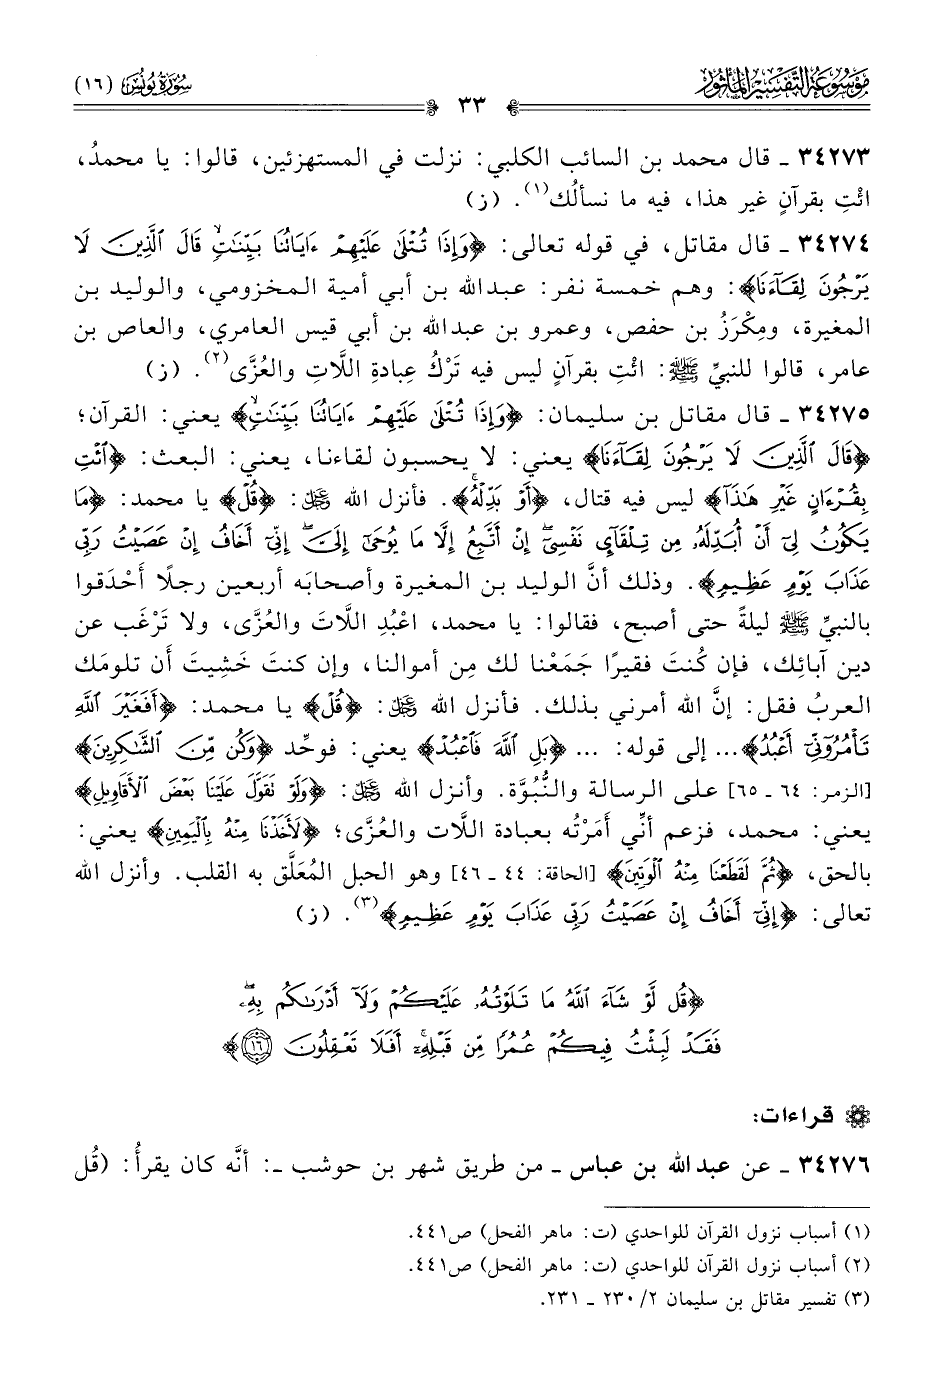 موسوعة التفسير المأثور
سورة يونس (١٦)
٣٣
٣٤٢٧٣ ـ قال محمد بن السائب الكلبي: نزلت في المستهزئين، قالوا: يا محمدُ،
ائْتِ بقرآنٍ غير هذا، فيه ما نسألُك(١). (ز)
٣٤٢٧٤ ـ قال مقاتل، في قوله تعالى: ﴿وَإِذَا تُتْلَىٰ عَلَيْهِمْ ءَايَاتُنَا بَيِّنَٰتٖ قَالَ ٱلَّذِينَ لَا
يَرْجُونَ لِقَآءَنَا﴾: وهم خمسة نفر: عبدالله بن أبي أمية المخزومي، والوليد بن
المغيرة، ومِكْرَزُ بن حفص، وعمرو بن عبدالله بن أبي قيس العامري، والعاص بن
عامر، قالوا للنبيِّ ﷺ: ائْتِ بقرآنٍ ليس فيه تَرْكُ عِبادةِ اللَّاتِ والعُزَّى(٢). (ز)
٣٤٢٧٥ ـ قال مقاتل بن سليمان: ﴿وَإِذَا تُتْلَىٰ عَلَيْهِمْ ءَايَاتُنَا بَيِّنَٰتٖ﴾ يعني: القرآن؛
﴿قَالَ ٱلَّذِينَ لَا يَرْجُونَ لِقَآءَنَا﴾ يعني: لا يحسبون لقاءنا، يعني: البعث: ﴿ٱئْتِ
بِقُرْءَانٍ غَيْرِ هَٰذَآ﴾ ليس فيه قتال، ﴿أَوْ بَدِّلْهُۚ﴾. فأنزل الله ﷿: ﴿قُلْ﴾ يا محمد: ﴿مَا
يَكُونُ لِيٓ أَنْ أُبَدِّلَهُۥ مِن تِلْقَآيِٕ نَفْسِيٓۖ إِنْ أَتَّبِعُ إِلَّا مَا يُوحَىٰٓ إِلَيَّۖ إِنِّيٓ أَخَافُ إِنْ عَصَيْتُ رَبِّي
عَذَابَ يَوْمٍ عَظِيمٍ﴾. وذلك أنَّ الوليد بن المغيرة وأصحابَه أربعين رجلًا أَحْدَقوا
بالنبيِّ ﷺ ليلةً حتى أصبح، فقالوا: يا محمد، اعْبُدِ اللَّاتَ والعُزَّى، ولا تَرْغَب عن
دين آبائِك، فإن كُنتَ فقيرًا جَمَعْنا لك مِن أموالنا، وإن كنتَ خَشِيتَ أن تلومَك
العربُ فقل: إنَّ الله أمرني بذلك. فأنزل الله ﷿: ﴿قُلْ﴾ يا محمد: ﴿أَفَغَيْرَ ٱللَّهِ
تَأْمُرُوٓنِّيٓ أَعْبُدُ﴾... إلى قوله: ... ﴿بَلِ ٱللَّهَ فَٱعْبُدْ﴾ يعني: فوحِّد ﴿وَكُن مِّنَ ٱلشَّٰكِرِينَ﴾
[الزمر: ٦٤ ـ ٦٥] على الرسالة والنُّبُوَّة. وأنزل الله ﷿: ﴿وَلَوْ تَقَوَّلَ عَلَيْنَا بَعْضَ ٱلْأَقَاوِيلِ﴾
يعني: محمد، فزعم أنِّي أمَرْتُه بعبادة اللَّات والعُزَّى؛ ﴿لَأَخَذْنَا مِنْهُ بِٱلْيَمِينِ﴾ يعني:
بالحق، ﴿ثُمَّ لَقَطَعْنَا مِنْهُ ٱلْوَتِينَ﴾ [الحاقة: ٤٤ ـ ٤٦] وهو الحبل المُعَلَّق به القلب. وأنزل الله
تعالى: ﴿إِنِّيٓ أَخَافُ إِنْ عَصَيْتُ رَبِّي عَذَابَ يَوْمٍ عَظِيمٍ﴾(٣). (ز)
﴿قُل لَّوْ شَآءَ ٱللَّهُ مَا تَلَوْتُهُۥ عَلَيْكُمْ وَلَآ أَدْرَىٰكُم بِهِۦۖ
فَقَدْ لَبِثْتُ فِيكُمْ عُمُرًا مِّن قَبْلِهِۦٓۚ أَفَلَا تَعْقِلُونَ ١٦﴾
قراءات:
٣٤٢٧٦ ـ عن عبدالله بن عباس ـ من طريق شهر بن حوشب ـ: أنَّه كان يقرأُ: (قُل
(١) أسباب نزول القرآن للواحدي (ت: ماهر الفحل) ص٤٤١.
(٢) أسباب نزول القرآن للواحدي (ت: ماهر الفحل) ص٤٤١.
(٣) تفسير مقاتل بن سليمان ٢/ ٢٣٠ ـ ٢٣١.